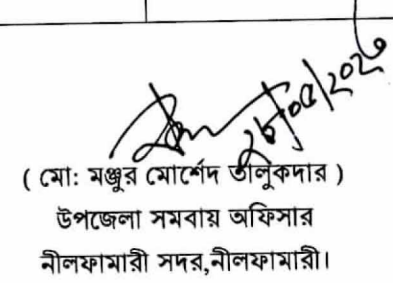 ( মো: মঞ্জুর মোর্শেদ তালুকদার )
উপজেলা সমবায় অফিসার
নীলফামারী সদর,নীলফামারী।